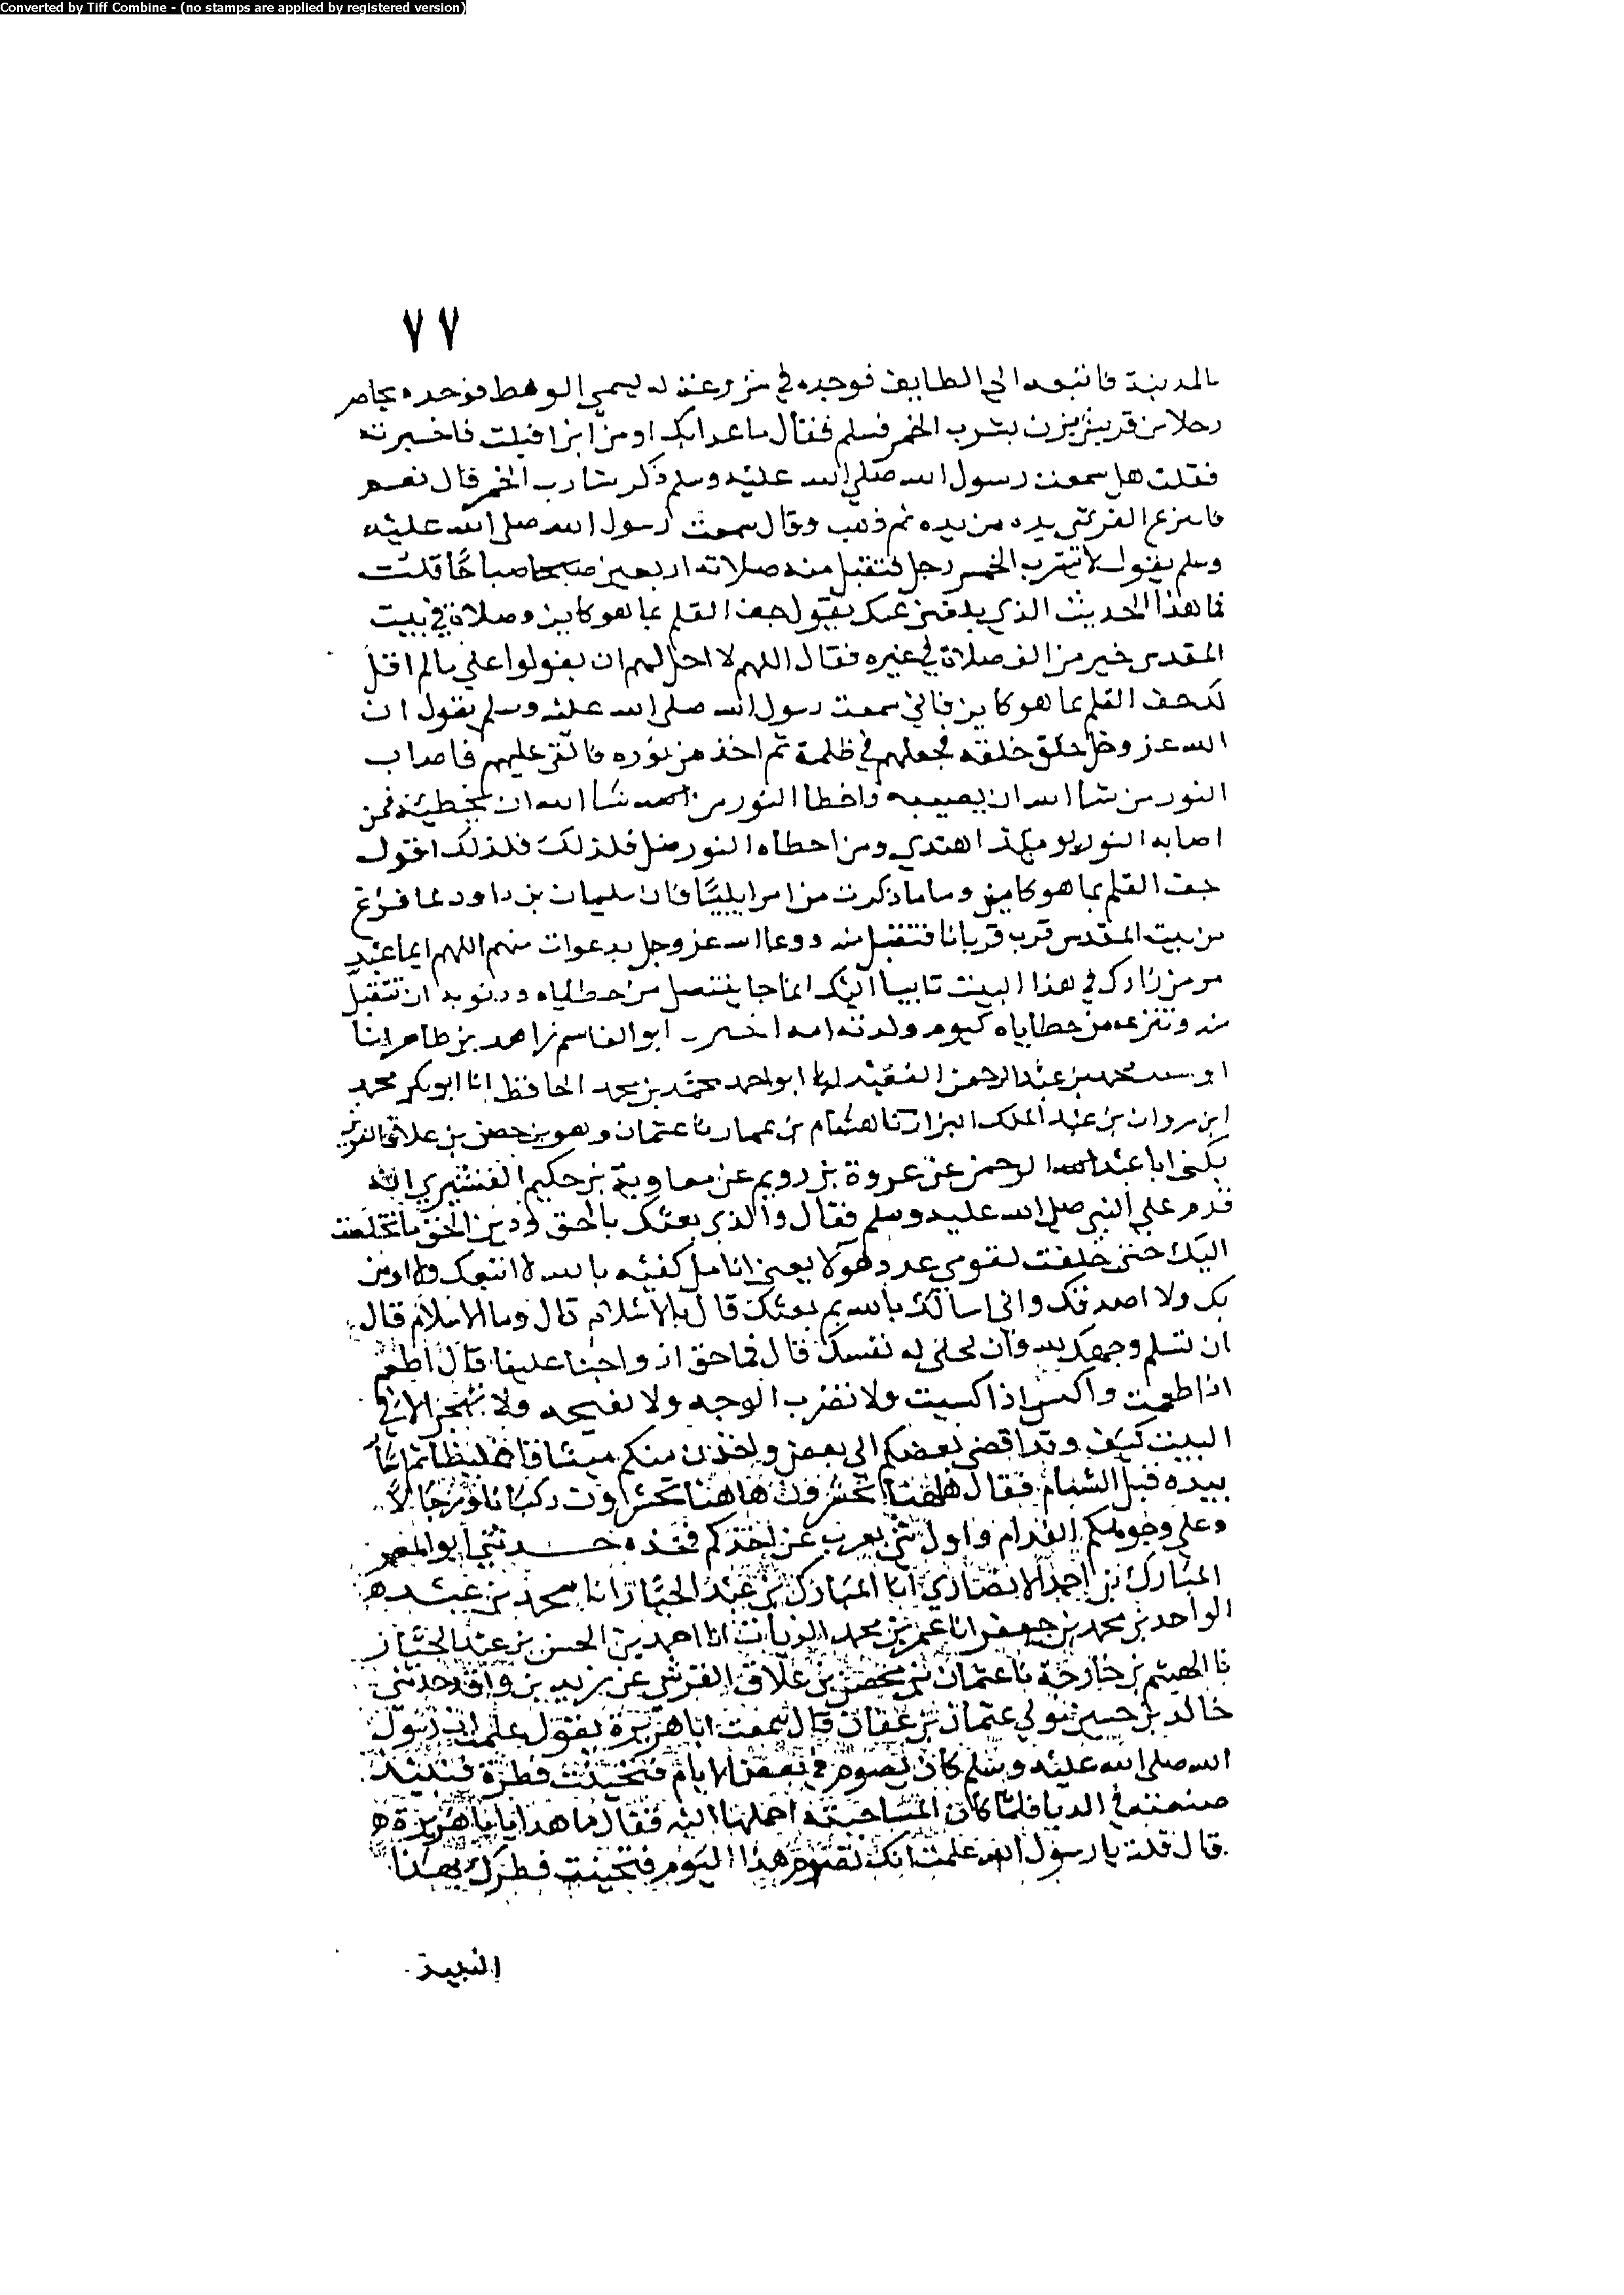 Converted by Tiff Combine - (no stamps are applied by registered version)
٧٧
بالمدينة فاتبعه الى الطايف فوجده في مزرعة له يسمى الوهط فوجده يخاصر
رجلا من قريش يزن بشرب الخمر فسلم فقال ما غدا بك او من اين اقبلت فاخبرته
فقلت هل سمعت رسول الله صلى الله عليه وسلم ذكر شارب الخمر قال نعم
فانتزع القرشي يده من يده ثم ذهب وقال سمعت رسول الله صلى الله عليه
وسلم يقول لا يشرب الخمر رجل فتقبل منه صلاته اربعين صباحا قلت
فما هذا الحديث الذي بلغني عنك يقول جف القلم بما هو كاين وصلاة في بيت
المقدس خير من الف صلاة في غيره فقال اللهم لا احل لهم ان يقولوا علي ما لم اقل
القلم بما هو كاين فاني سمعت رسول الله صلى الله عليه وسلم يقول ان
الله عز وجل خلق خلقه فجعلهم في ظلمة ثم اخذ من نوره فالقى عليهم فاصاب
النور من شا الله ان يصيبه واخطا النور من شا الله ان يخطيه فمن
اصابه النور يوميذ اهتدى ومن اخطاه النور ضل فلذلك فلذلك اقول
جف القلم بما هو كاين وما ما ذكرت من ايليا فان سليمان بن داود لما فرغ
من بيت المقدس قرب قربانا فتقبل منه ودعا الله عز وجل بدعوات منهم اللهم ايما عبد
مومن زارك في هذا البيت تايبا اليك انما جا يتنصل من خطاياه وذنوبه ان تتقبل
منه وتنزعه من خطاياه كيوم ولدته امه ابو القاسم زاهد بن طاهر انا
محمد بن عبد الرحمن الفقيه انا ابو احمد محمد بن محمد الحافظ انا ابو بكر محمد
ابن مروان بن عبد الملك البزار نا هشام بن عمار نا عثمان وهو بن حصن بن علاق القرشي
يكنى ابا عبد الرحمن عن عروة بن رويم عن معاوية بن حكيم القشيري انه
قدم على النبي صلى الله عليه وسلم فقال والذي بعثك بالحق ودين الحق ما تخلصت
اليك حتى حلفت لقومي عدد هولا يعني انامل كفيه بالله لا اتبعك ولا اومن
بك ولا اصدقك واني اسالك بالله بم بعثك قال بالاسلام قال وما الاسلام قال
ان تسلم وجهك لله وان تخلي له نفسك قال فما حق ازواجنا علينا قال اطعم
اذا طعمت واكس اذا كسيت ولا تضرب الوجه ولا تقبحه ولا تهجر الا في
البيت كيف وقد افضى بعضكم الى بعض واخذن منكم ميثاقا غليظا
بيده قبل الشام فقال هاهنا تحشرون هاهنا تحشرون ركبانا ورجالا
وعلى وجوهكم الفدام واول شي يعرب عن احدكم فخذه حدثني ابو المعمر
المبارك بن احمد الانصاري انا المبارك بن عبد الجبار انا محمد بن عبد
الواحد بن محمد بن جعفر انا عمر بن محمد الزيات انا احمد بن الحسن بن عبد الجبار
نا الهيثم بن خارجة نا عثمان بن حصن بن علاق القرشي عن يزيد بن واقد حدثني
خالد بن حسين مولى عثمان بن عفان قال سمعت ابا هريرة يقول علمت ان رسول
الله صلى الله عليه وسلم كان يصوم في بعض الايام فتحينت فطره بنبيذ
صنعته في الدبا فلما كان المسا جيته احملها اليه فقال ما هذا يابا هريرة
قال قلت يا رسول الله علمت انك تصوم هذا اليوم فتحينت فطرك بهذا
النبيذ